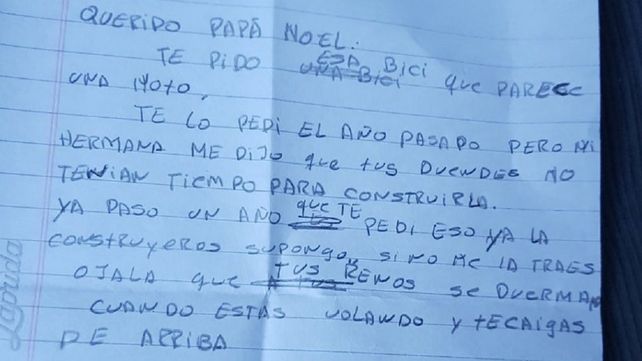 QUERIDO PAPÁ NOEL:
TE PIDO ESA BICI QUE PARECE
UNA BICI
UNA MOTO,
TE LO PEDI EL AÑO PASADO PERO MI
HERMANA ME DIJO QUE TUS DUENDES NO
TENIAN TIEMPO PARA CONSTRUIRLA.
YA PASO UN AÑO QUE TE PEDI ESO YA LA
CONSTRUYEROS SUPONGO, SI NO ME LA TRAES
OJALA QUE TUS RENOS SE DUERMAN
CUANDO ESTÁS VOLANDO Y TECAIGAS
DE ARRIBA
Laprida